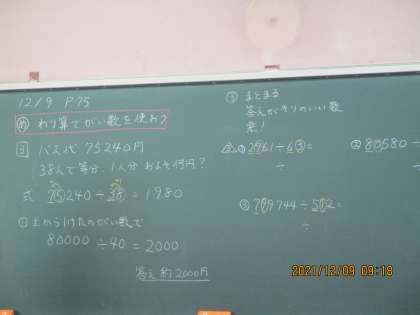 12/9 P75
め わり算でがい数を使おう
問 バス代 75240円
38人で等分、1人分 およそ何円?
式 75240÷38=1980
① 上から1けたのがい数で
80000÷40=2000
答え 約2000円
まとまる
答えがキリのいい数
楽!
2961÷63=
÷
② 80580÷
÷
③ 709744÷502=
÷
2021/12/09 09:18